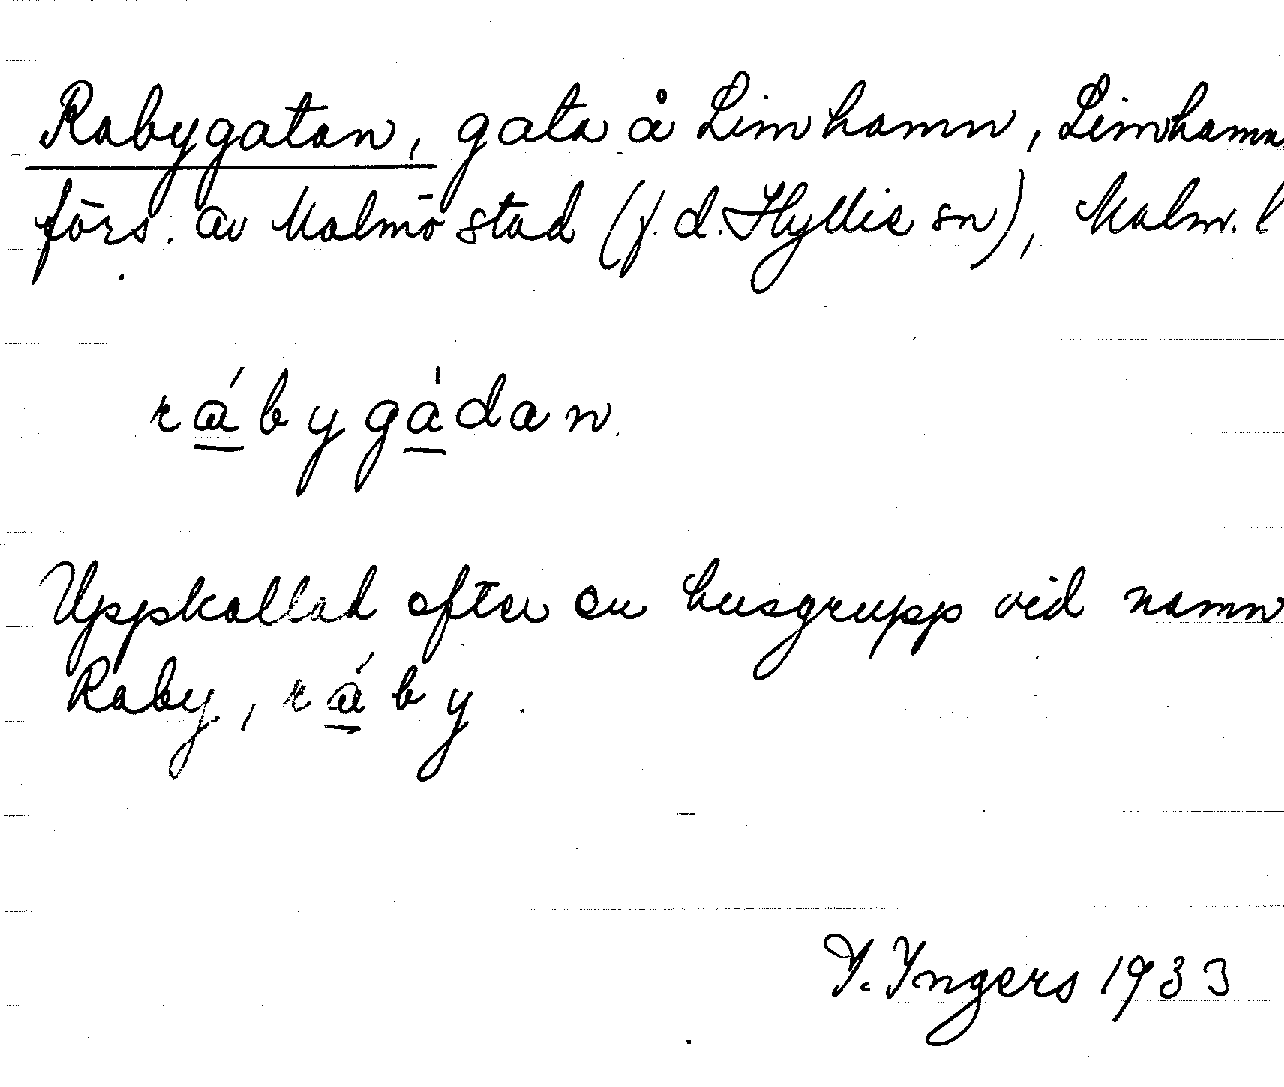 Rabygatan, gata å Limhamn, Limhamns
förs. av Malmö stad (f.d. Hyllie sn), Malm. l
rábygàdan.
Uppkallad efter en husgrupp vid namn
Raby, ráby.
I. Ingers 1933